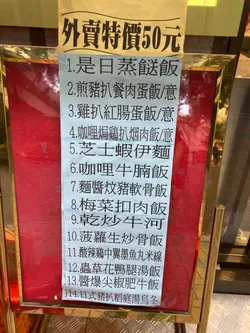 外賣特價50元
1.是日蒸餸飯
2.煎豬扒餐肉蛋飯/意
3.雞扒紅腸蛋飯/意
4.咖哩焗鷄扒烟肉飯/意
5.芝士蝦伊麵
6.咖哩牛腩飯
7.麵醬炆豬軟骨飯
8.梅菜扣肉飯
9.乾炒牛河
10.菠蘿生炒骨飯
11.酸辣鷄中翼墨魚丸米線
12.蟲草花鴨腿湯飯
13.醬爆尖椒肥牛飯
14.日式豬扒稻庭湯烏冬